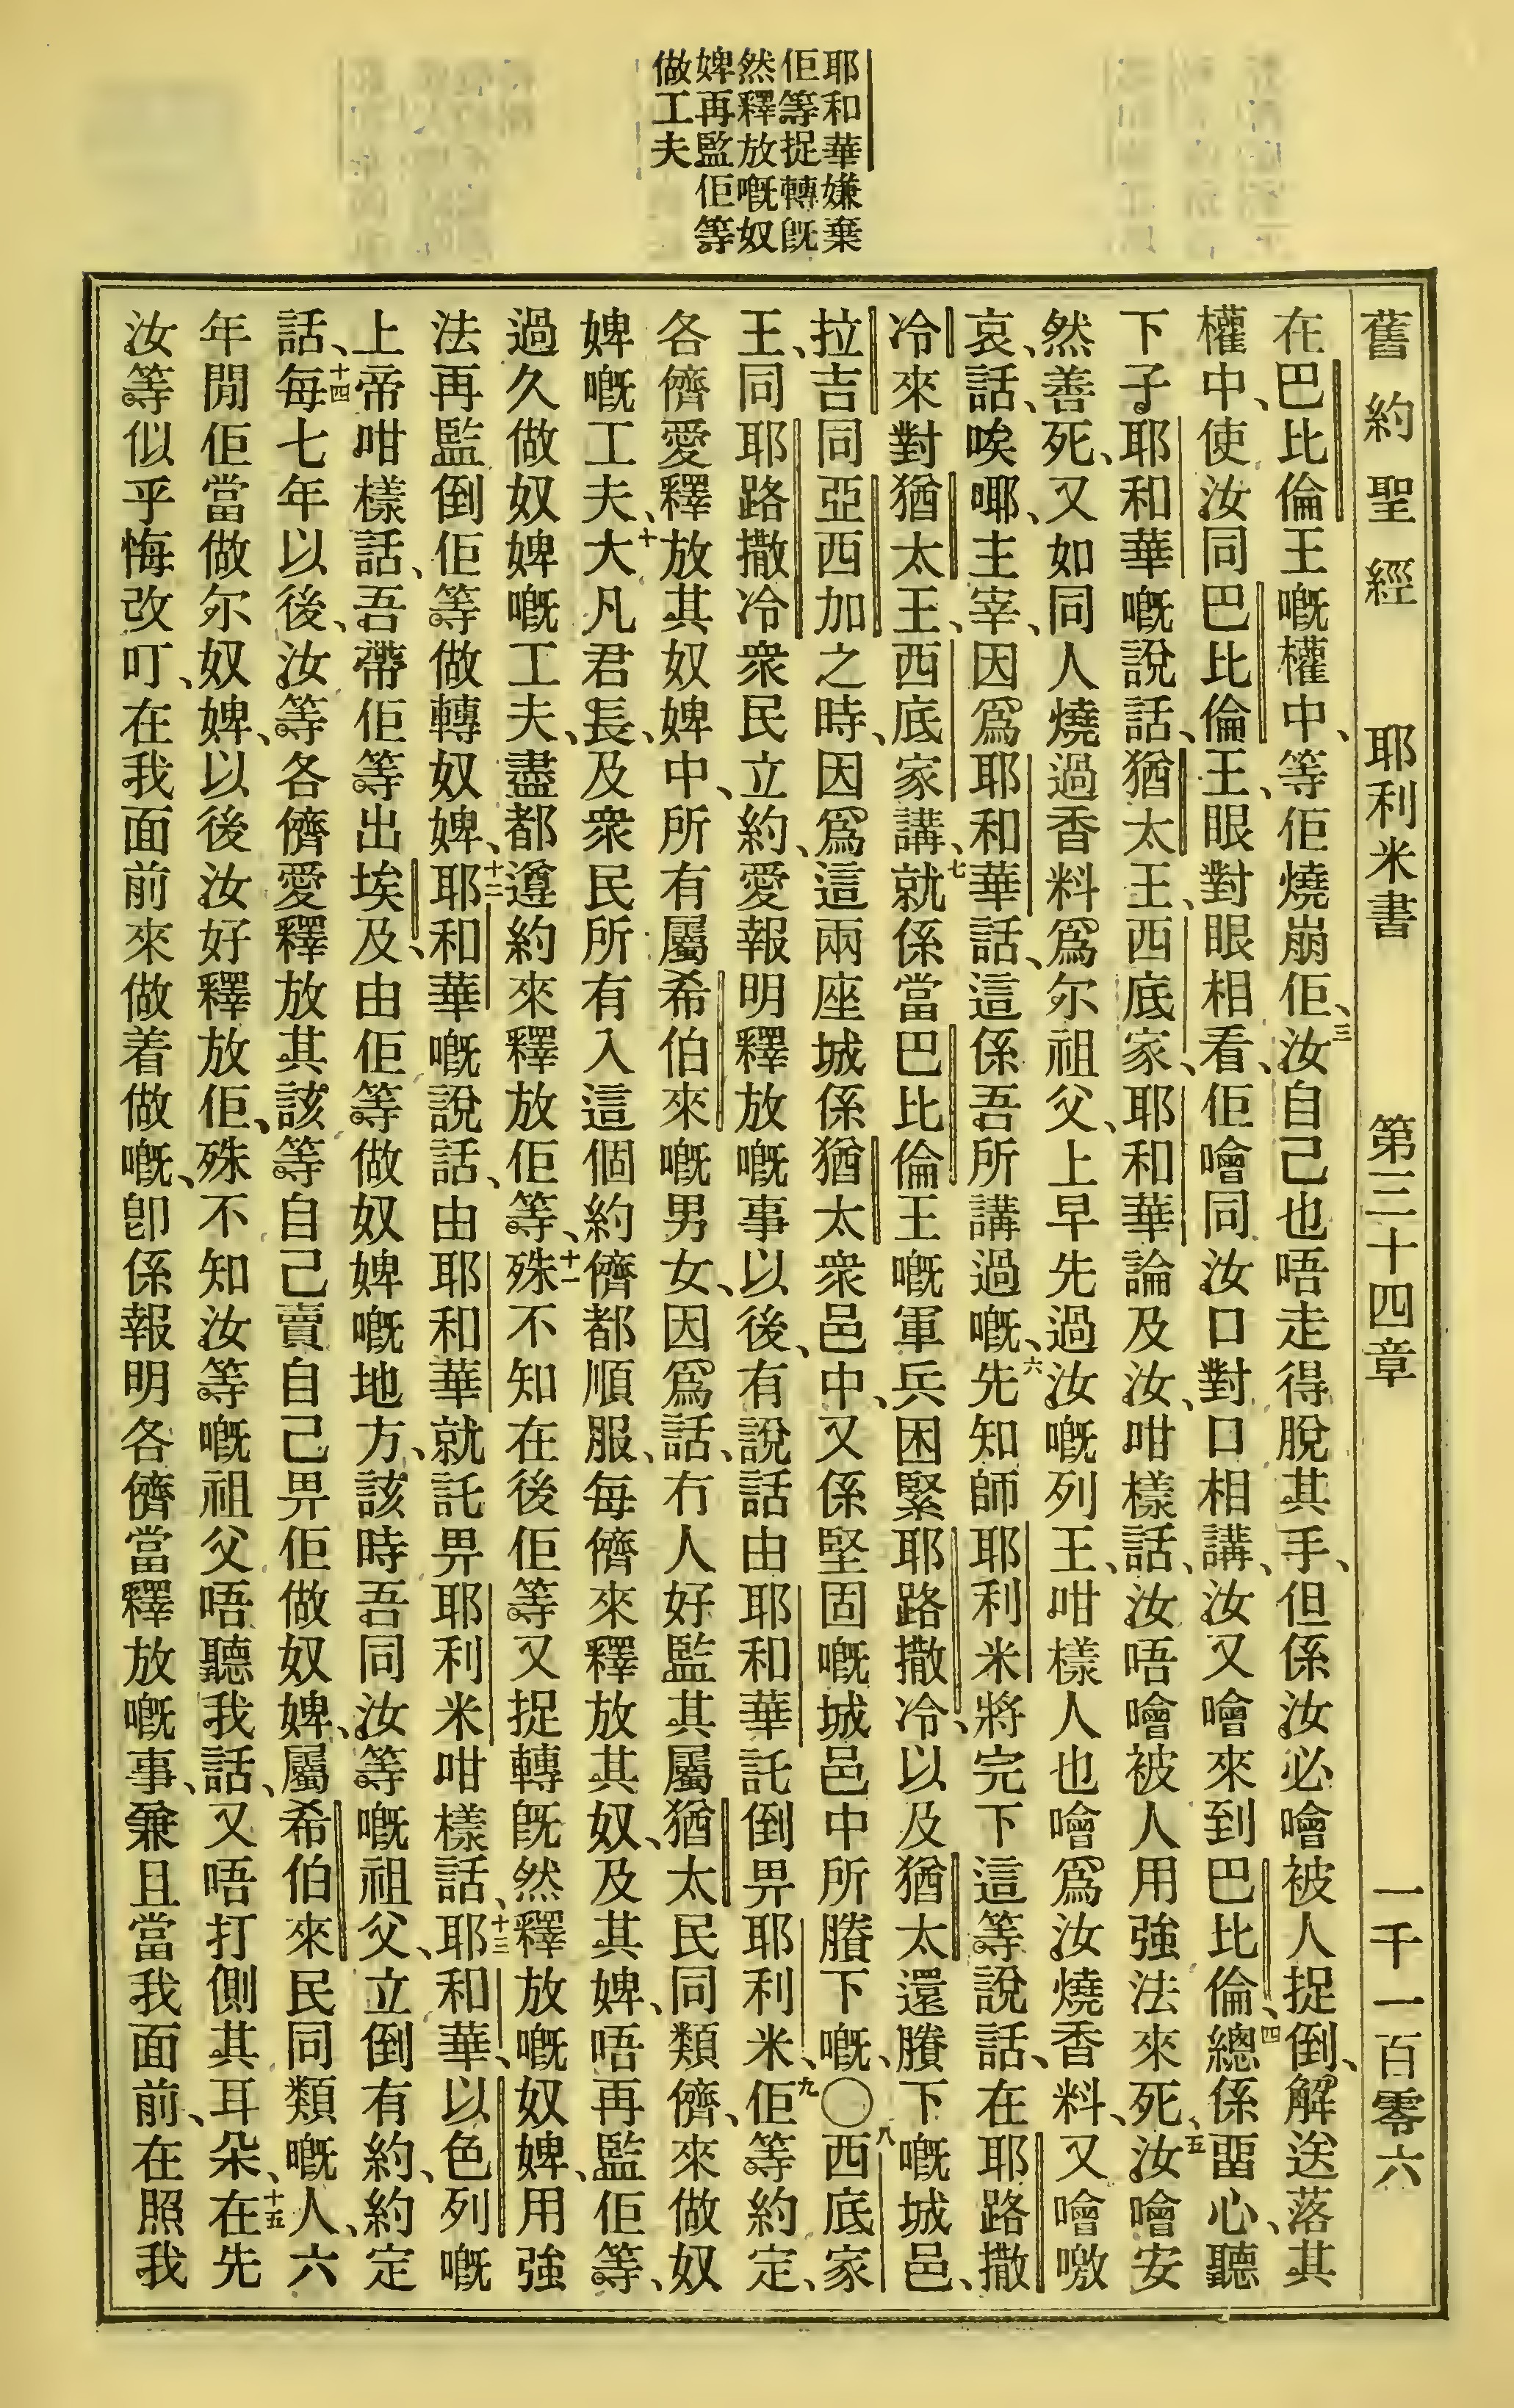 耶和華嫌棄
佢等捉轉旣
然釋放嘅奴
婢再監佢等
做工夫
舊約聖經 耶利米書 第三十四章 一千一百零六
在巴比倫王嘅權中、等佢燒崩佢、三汝自己也唔走得脫其手、但係汝必噲被人捉倒、解送落其
權中、使汝同巴比倫王、眼對眼相看、佢噲同汝口對口相講、汝又噲來到巴比倫、四總係畱心、聽
下子耶和華嘅說話、猶太王、西底家、耶和華論及汝、咁樣話、汝唔噲被人用強法來死、五汝噲安
然善死、又如同人燒過香料爲尔祖父、上早先過汝嘅列王、咁樣人也噲爲汝燒香料、又噲噭
哀、話、唉㖿、主宰、因爲耶和華話、這係吾所講過嘅、六先知師耶利米將完下這等說話、在耶路撒
冷來對猶太王、西底家講、七就係當巴比倫王嘅軍兵困緊耶路撒冷、以及猶太還賸下嘅城邑、
拉吉同亞西加之時、因爲這兩座城係猶太衆邑中、又係堅固嘅城邑中所賸下嘅、〇八西底家
王、同耶路撒冷衆民立約、愛報明釋放嘅事以後、有說話由耶和華託倒畀耶利米、九佢等約定、
各儕愛釋放其奴婢中、所有屬希伯來嘅男女、因爲話、冇人好監其屬猶太民同類儕、來做奴
婢嘅工夫、十大凡君長、及衆民所有入這個約儕都順服、每儕來釋放其奴、及其婢、唔再監佢等、
過久做奴婢嘅工夫、盡都遵約來釋放佢等、十一殊不知在後佢等又捉轉旣然釋放嘅奴婢、用強
法再監倒佢等做轉奴婢、十二耶和華嘅說話、由耶和華就託畀耶利米咁樣話、十三耶和華、以色列嘅
上帝咁樣話、吾帶佢等出埃及、由佢等做奴婢嘅地方、該時吾同汝等嘅祖父、立倒有約、約定
話、十四每七年以後、汝等各儕愛釋放其該等自己賣自己畀佢做奴婢、屬希伯來民同類嘅人、六
年閒佢當做尔奴婢、以後汝好釋放佢、殊不知汝等嘅祖父唔聽我話、又唔打側其耳朵、十五在先
汝等似乎悔改叮、在我面前來做着做嘅、卽係報明各儕當釋放嘅事、兼且當我面前、在照我